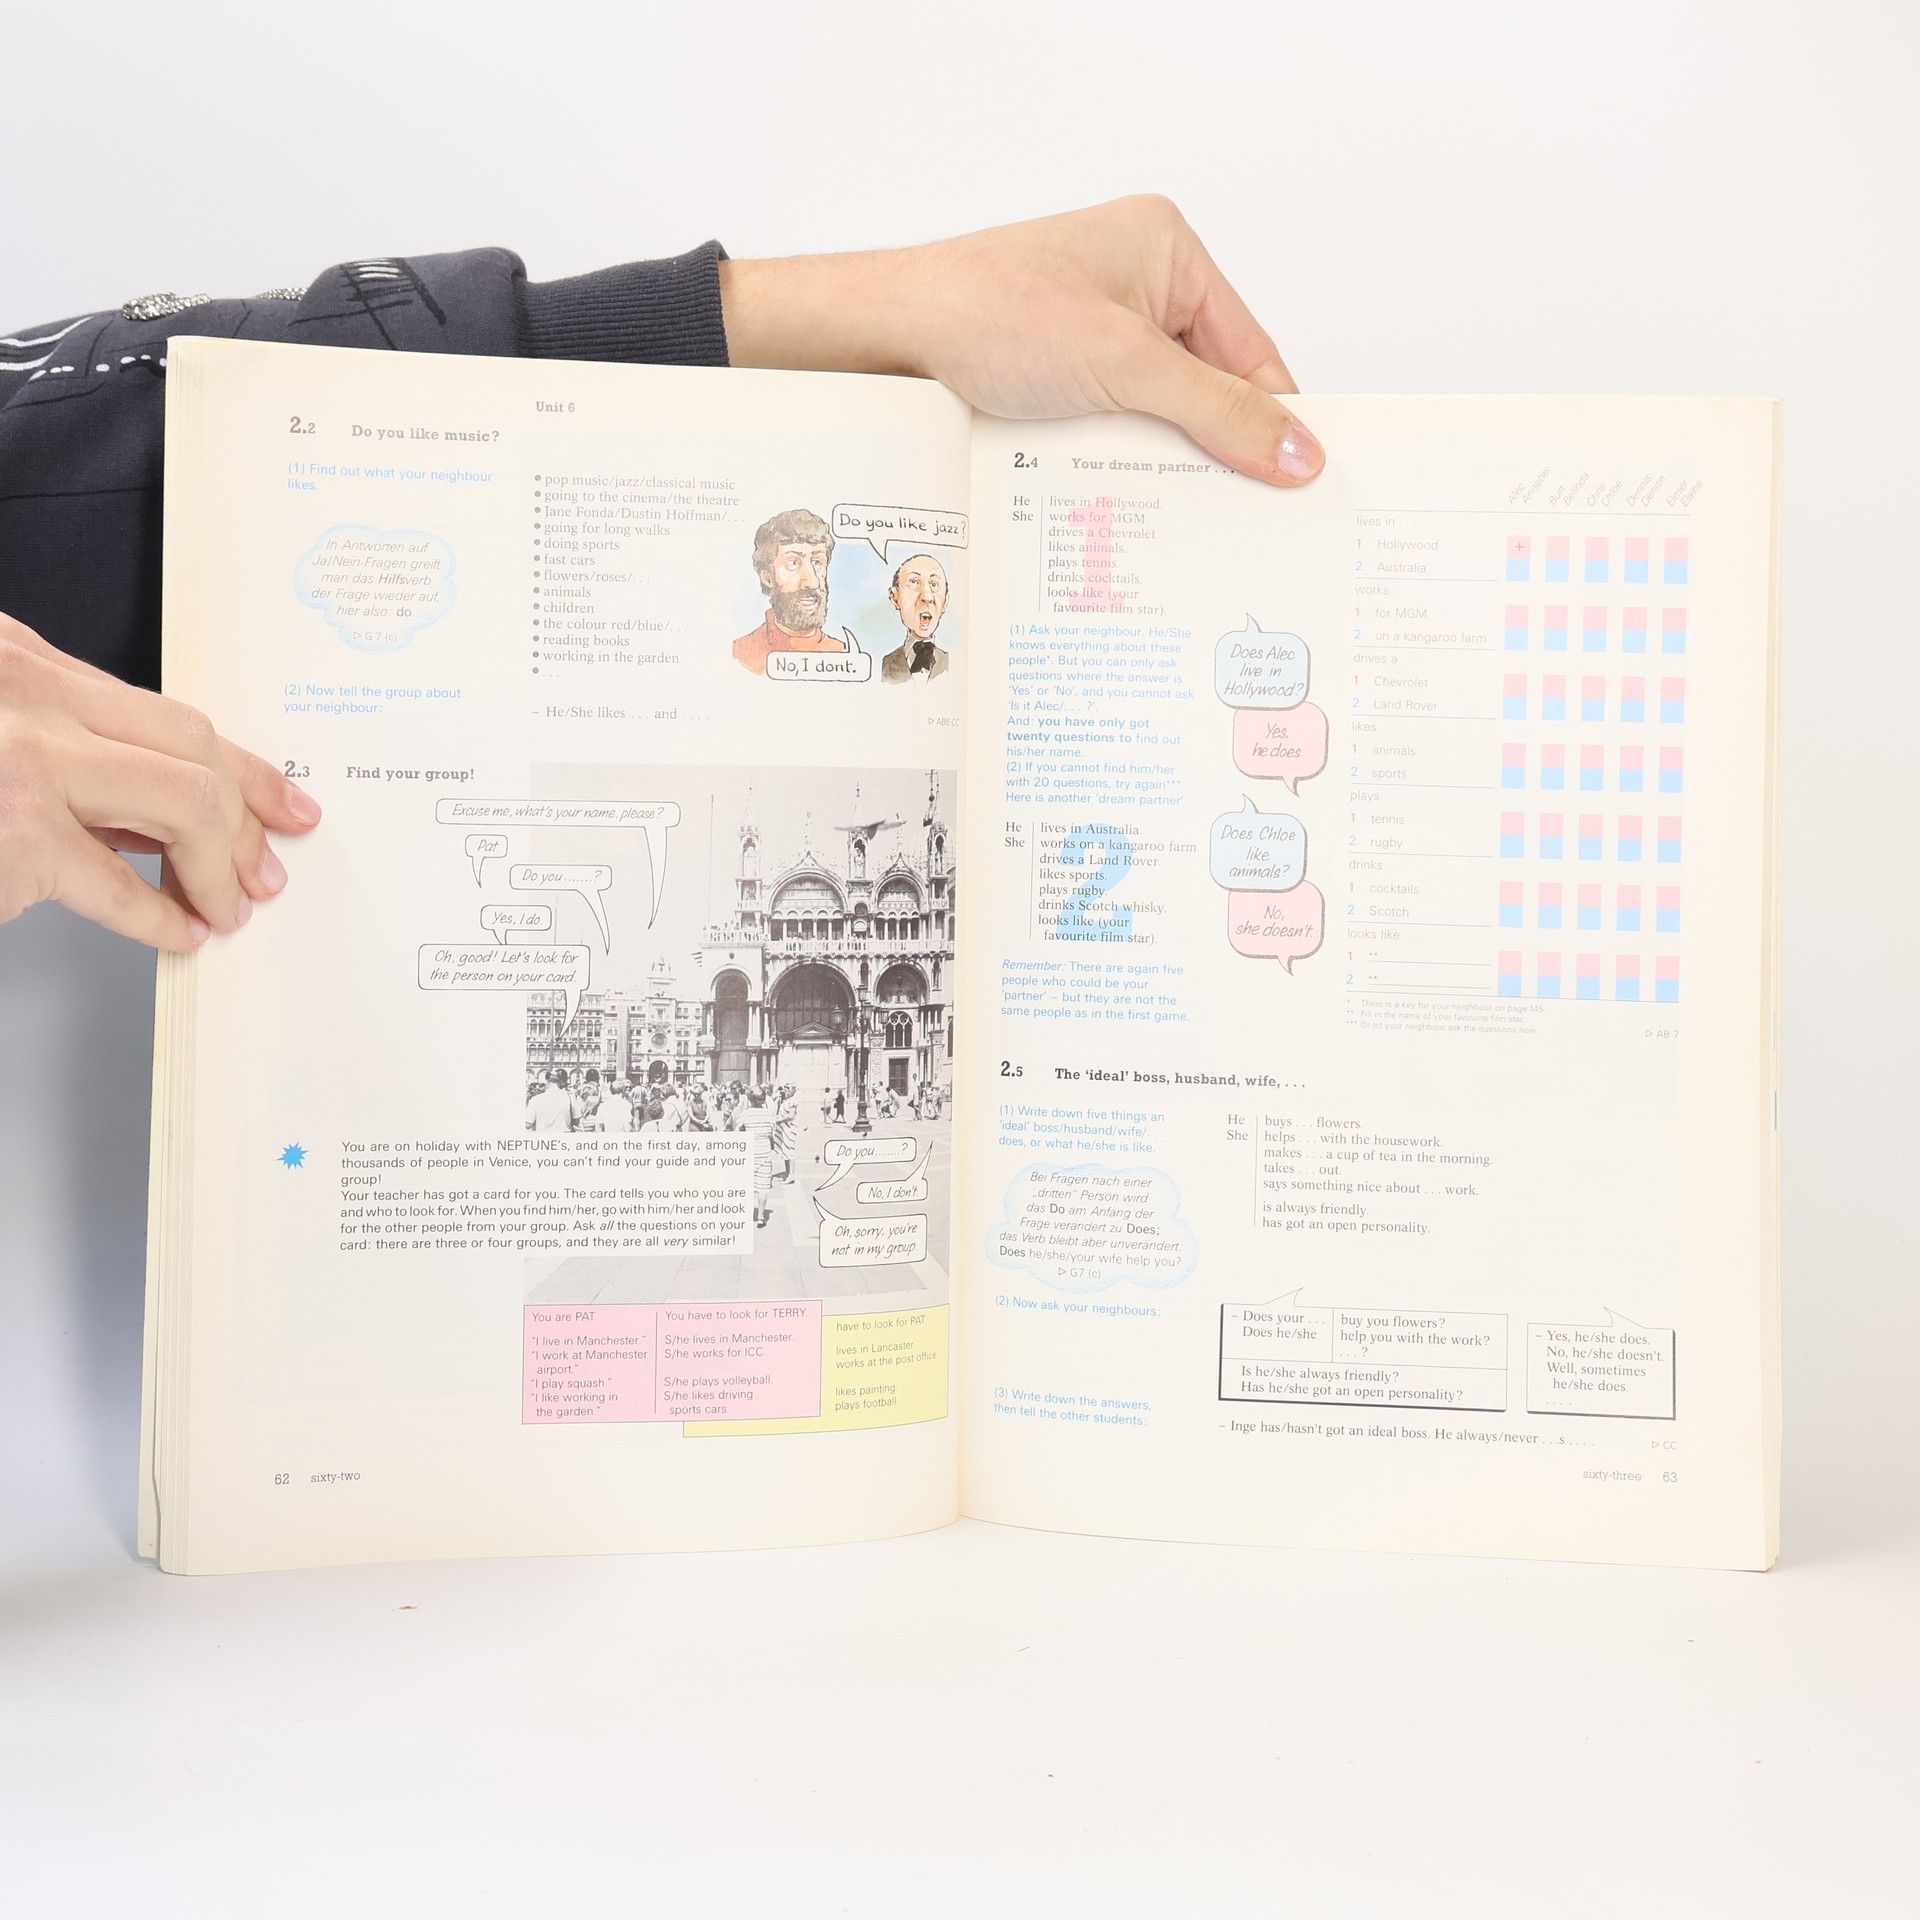 Unit 6
2.2 Do you like music?
(1) Find out what your neighbour
likes.
In Antworten auf
Ja/Nein-Fragen greift
man das Hilfsverb
der Frage wieder auf,
hier also: do.
▷ G 7 (c)
• pop music/jazz/classical music
• going to the cinema/the theatre
• Jane Fonda/Dustin Hoffman/. . .
• going for long walks
• doing sports
• fast cars
• flowers/roses/. . .
• animals
• children
• the colour red/blue/. . .
• reading books
• working in the garden
• . . .
Do you like jazz?
No, I dont.
(2) Now tell the group about
your neighbour:
– He/She likes . . . and . . . .
▷ AB6·CC
2.3 Find your group!
Excuse me, what's your name, please?
Pat.
Do you........?
Yes, I do.
Oh, good! Let's look for
the person on your card.
You are on holiday with NEPTUNE's, and on the first day, among
thousands of people in Venice, you can't find your guide and your
group!
Your teacher has got a card for you. The card tells you who you are
and who to look for. When you find him/her, go with him/her and look
for the other people from your group. Ask all the questions on your
card: there are three or four groups, and they are all very similar!
Do you........?
No, I don't.
Oh, sorry, you're
not in my group.
You are PAT.
"I live in Manchester."
"I work at Manchester
airport."
"I play squash."
"I like working in
the garden."
You have to look for TERRY.
S/he lives in Manchester.
S/he works for ICC.
S/he plays volleyball.
S/he likes driving
sports cars.
have to look for PAT.
lives in Lancaster.
works at the post office.
likes painting.
plays football.
62 sixty-two
2.4 Your dream partner . . .
1
He
She
lives in Hollywood.
works for MGM.
drives a Chevrolet.
likes animals.
plays tennis.
drinks cocktails.
looks like (your
favourite film star).
(1) Ask your neighbour. He/She
knows everything about these
people*. But you can only ask
questions where the answer is
'Yes' or 'No', and you cannot ask
'Is it Alec/. . . ?'.
And: you have only got
twenty questions to find out
his/her name.
(2) If you cannot find him/her
with 20 questions, try again***.
Here is another 'dream partner':
2
He
She
lives in Australia.
works on a kangaroo farm.
drives a Land Rover.
likes sports.
plays rugby.
drinks Scotch whisky.
looks like (your
favourite film star).
Remember: There are again five
people who could be your
'partner' – but they are not the
same people as in the first game.
Does Alec
live in
Hollywood?
Yes,
he does.
Does Chloe
like
animals?
No,
she doesn't.
Alec
Annabel
Burt
Belinda
Chris
Chloe
Dennis
Denise
Elmer
Elaine
lives in . . .
1 Hollywood
+
2 Australia
works . . .
1 for MGM
2 on a kangaroo farm
drives a . . .
1 Chevrolet
2 Land Rover
likes . . .
1 animals
2 sports
plays . . .
1 tennis
2 rugby
drinks . . .
1 cocktails
2 Scotch
looks like . . .
1 **
2 **
* There is a key for your neighbour on page 146.
** Fill in the name of your favourite film star.
*** Or let your neighbour ask the questions now.
▷ AB 7
2.5 The 'ideal' boss, husband, wife, . . .
(1) Write down five things an
'ideal' boss/husband/wife/. . .
does, or what he/she is like.
He
She
buys . . . flowers.
helps . . . with the housework.
makes . . . a cup of tea in the morning.
takes . . . out.
says something nice about . . . work.
is always friendly.
has got an open personality.
Bei Fragen nach einer
„dritten" Person wird
das Do am Anfang der
Frage verändert zu Does;
das Verb bleibt aber unverändert:
Does he/she/your wife help you?
▷ G7 (c)
(2) Now ask your neighbours:
– Does your . . .
Does he/she
buy you flowers?
help you with the work?
. . . ?
Is he/she always friendly?
Has he/she got an open personality?
– Yes, he/she does.
No, he/she doesn't.
Well, sometimes
he/she does.
. . . .
(3) Write down the answers,
then tell the other students:
– Inge has/hasn't got an ideal boss. He always/never . . .s . . . .
▷ CC
sixty-three 63